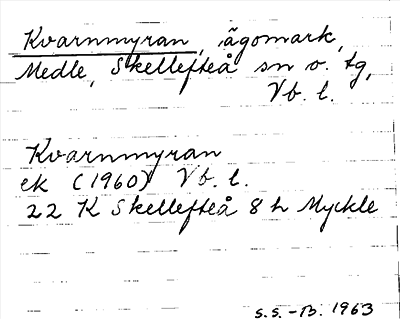 Kvarnmyran, ägomark,
Medle, Skellefteå sn o. tg,
Vb. l.
Kvarnmyran
ek (1960) Vb. l.
22 K Skellefteå 8 h Myckle
S.S.-B. 1963